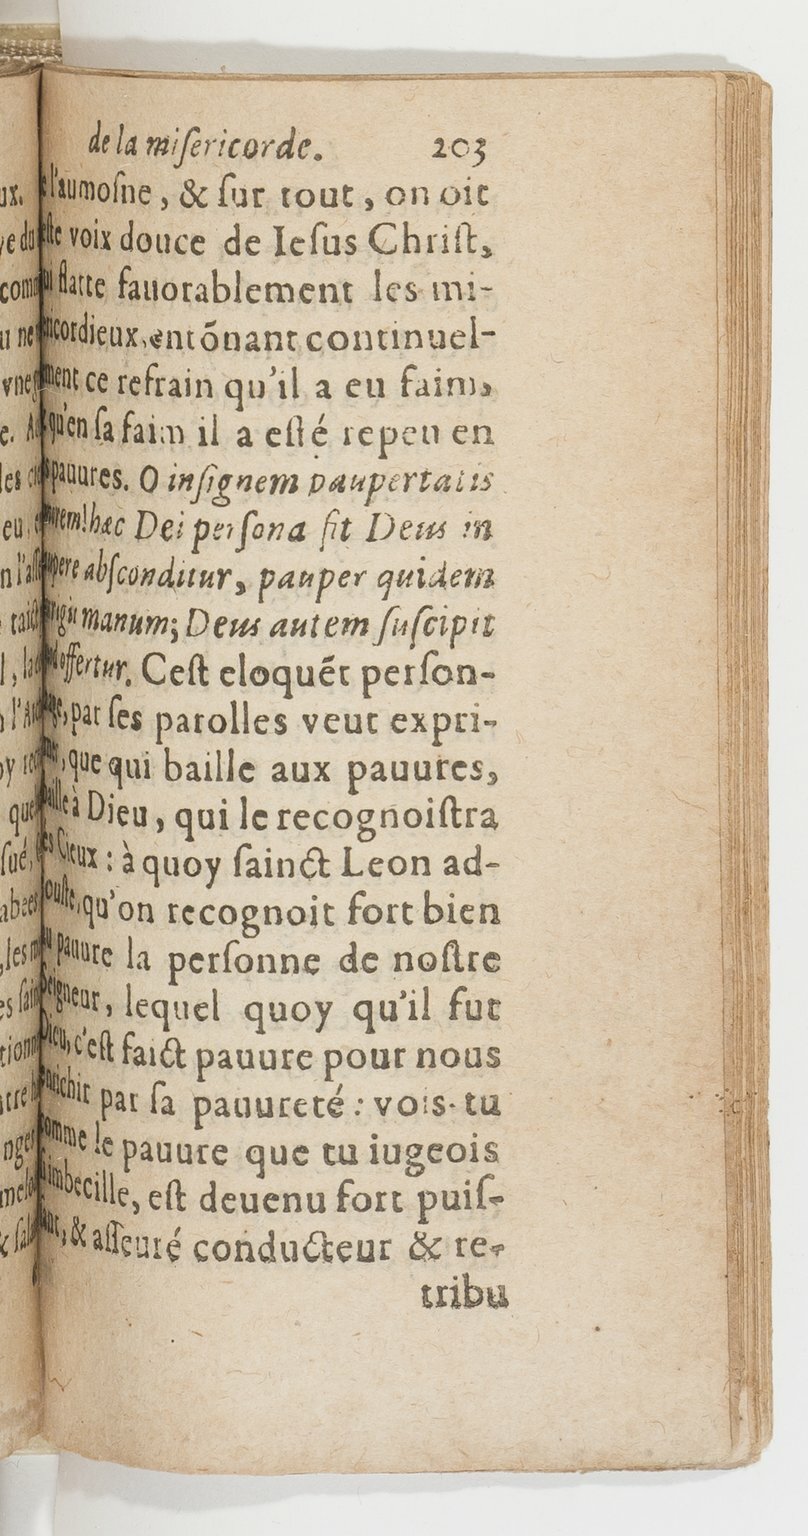 de la miſericorde. 203
l'aumoſne, & ſur tout, on oit
voix douce de Ieſus Chriſt,
flatte fauorablement les mi-
ricordieux, entõnant continuel-
ment ce refrain qu'il a eu faim,
qu'en ſa faim il a eſté repeu en
pauures. O inſignem paupertatis
hæc Dei perſona fit Deus in
abſconditur, pauper quidem
manum; Deus autem ſuſcipit
offertur. Ceſt eloquẽt perſon-
par ſes parolles veut expri-
que qui baille aux pauures,
à Dieu, qui le recognoiſtra
Cieux : à quoy ſainct Leon ad-
qu'on recognoit fort bien
pauure la perſonne de noſtre
lequel quoy qu'il fut
c'eſt faict pauure pour nous
par ſa pauureté : vois-tu
le pauure que tu iugeois
imbecille, eſt deuenu fort puiſ-
& aſſeuré conducteur & re-
tribu